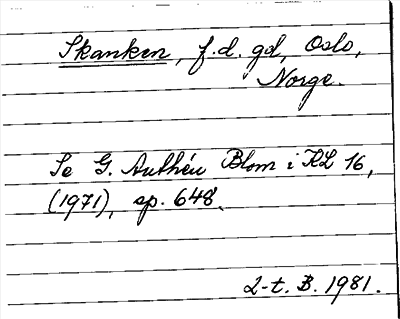 Skanken, f.d. gd, Oslo,
Norge.
Se G. Authén Blom i KL 16,
(1971), sp. 648.
2-t. B. 1981.